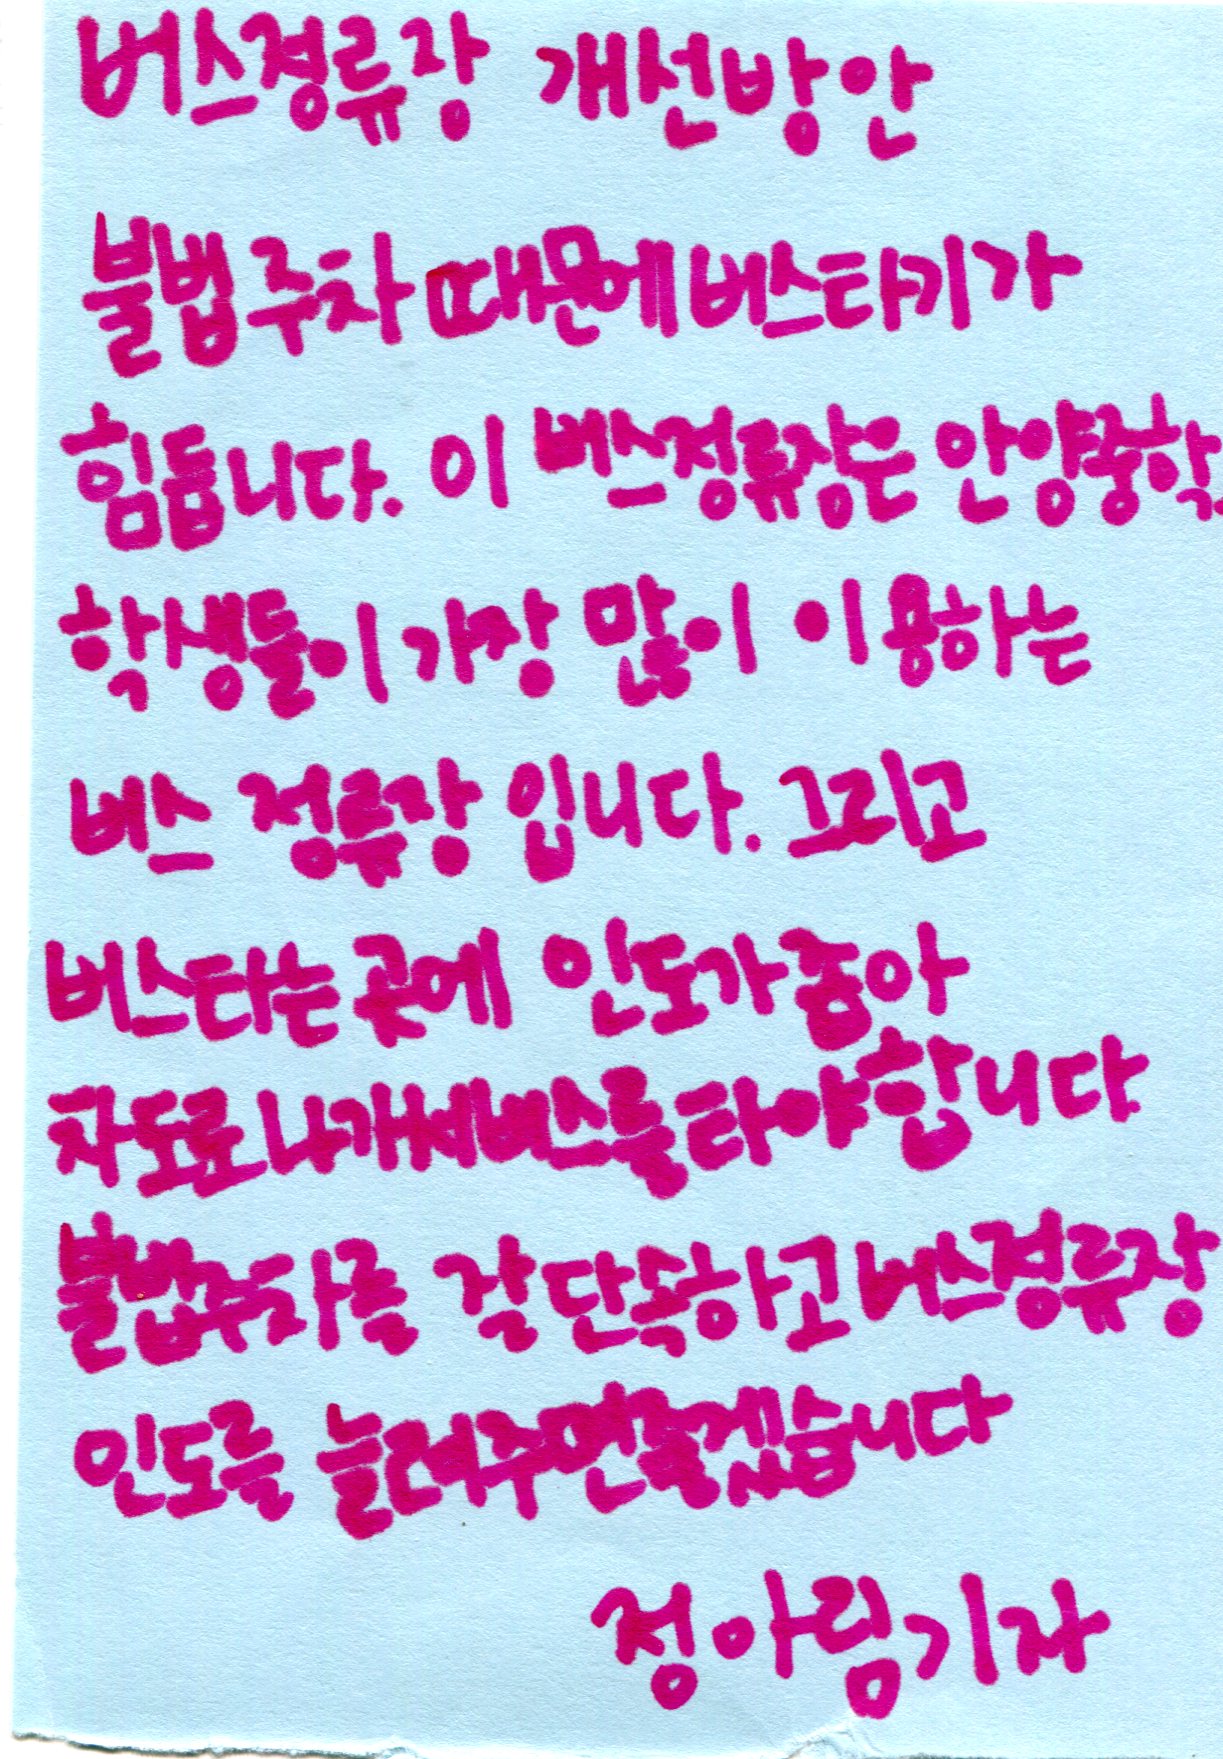 버스정류장 개선방안
불법 주차 때문에 버스타기가
힘듭니다. 이 버스정류장은 안양중학
학생들이 가장 많이 이용하는
버스 정류장 입니다. 그리고
버스타는 곳에 인도가 좁아
차도로 나가서 버스를 타야 합니다.
불법주차를 잘 단속하고 버스정류장
인도를 늘려주면 좋겠습니다
정아림기자